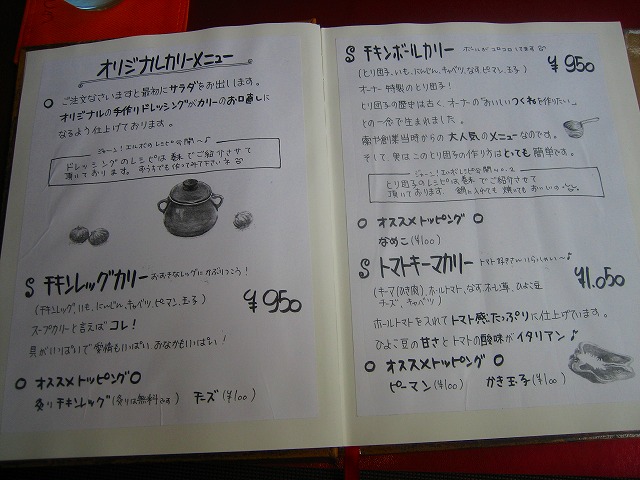 オリジナルカリーメニュー
○ ご注文なさいますと最初にサラダをお出します。
オリジナルの手作りドレッシングがカリーのお口直しに
なるよう仕上げております。
ジャーン!エルボのレシピ公開〜♪
ドレッシングのレシピは でご紹介させて
頂いております。おうちでも作ってみて下さいネ
S チキンレッグカリー おおきなレッグにかぶりつこう!
¥950
(チキンレッグ、いも、にんじん、キャベツ、ピーマン、玉子)
スープカリーと言えばコレ!
具がいっぱいで愛情もいっぱい、おなかもいっぱい!
○ オススメトッピング ○
炙りチキンレッグ(炙りは無料です) チーズ(¥100)
S チキンボールカリー ボールがコロコロしてます
¥950
(とり団子、いも、にんじん、キャベツ、なす、ピーマン、玉子)
オーナー特製のとり団子!
とり団子の歴史は古く、オーナーの"おいしいつくねを作りたい"
との一念で生まれました。
創業当時からの大人気のメニューなのです。
そして、実はこのとり団子の作り方はとても簡単です。
ジャーン!エルボレシピ公開 no.2
とり団子のレシピは でご紹介させて
頂いております。鍋に入れても焼いてもおいしい
○ オススメトッピング ○
なめこ(¥100)
S トマトキーマカリー トマト好きさんいらっしゃい〜♪
¥1,050
(キーマ(ひき肉)、ホールトマト、なす、ホーレン草、ひよこ豆
チーズ、キャベツ)
ホールトマトを入れてトマト感たっぷりに仕上げています。
ひよこ豆の甘さとトマトの酸味がイタリアン♪
○ オススメトッピング ○
ピーマン(¥100) かき玉子(¥100)